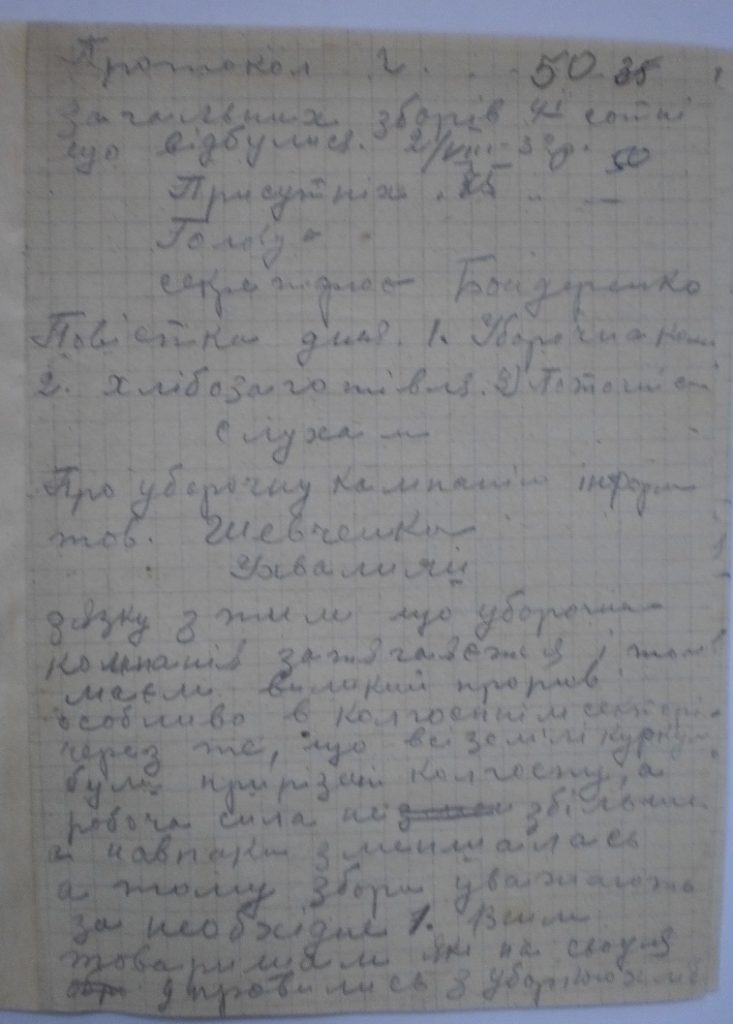 Протокол 2. . . 50. 35
загальних зборів 4ї сотні
що відбулися. 2/VIII-32р. 50
Присутніх . 25 . . —
Голову -
секретарює Бондаренко
Повістка дня. 1. Уборочна комп
2. хлібозаготівля. 3) Поточні сп
слухали
Про уборочну кампанію інформ
тов. Шевченко
Ухвалили
звязку з тим що уборочна
компанія затягається і там
маєм великий прорив
особливо в колгоспнім секторі
через те, що всі землі куркул
були прирізані колгоспу, а
робоча сила не збільши
а навпаки зменшилась
а тому збори уважають
за необхідне 1. Всим
товаришам які на сьогодні
управились з уборкою хліб